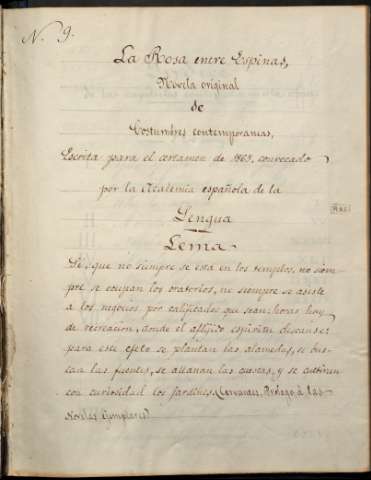 N. 9.
La Rosa entre Espinas,
Novela original
de
Costumbres contemporaneas,
Escrita para el certamen de 1865, convocado
por la Academia española de la
Lengua
Lema
Sé, que no siempre se está en los templos, no siem
pre se ocupan los oratorios, no siempre se asiste
a los negocios por calificados que sean: horas hay
de recreacion, donde el aflijido espiritu descanse:
para este efeto se plantan las alamedas, se bus
can las fuentes, se allanan las cuestas, y se cultivan
con curiosidad los jardines. (Cervantes, Prólogo á las
Novelas Ejemplares)